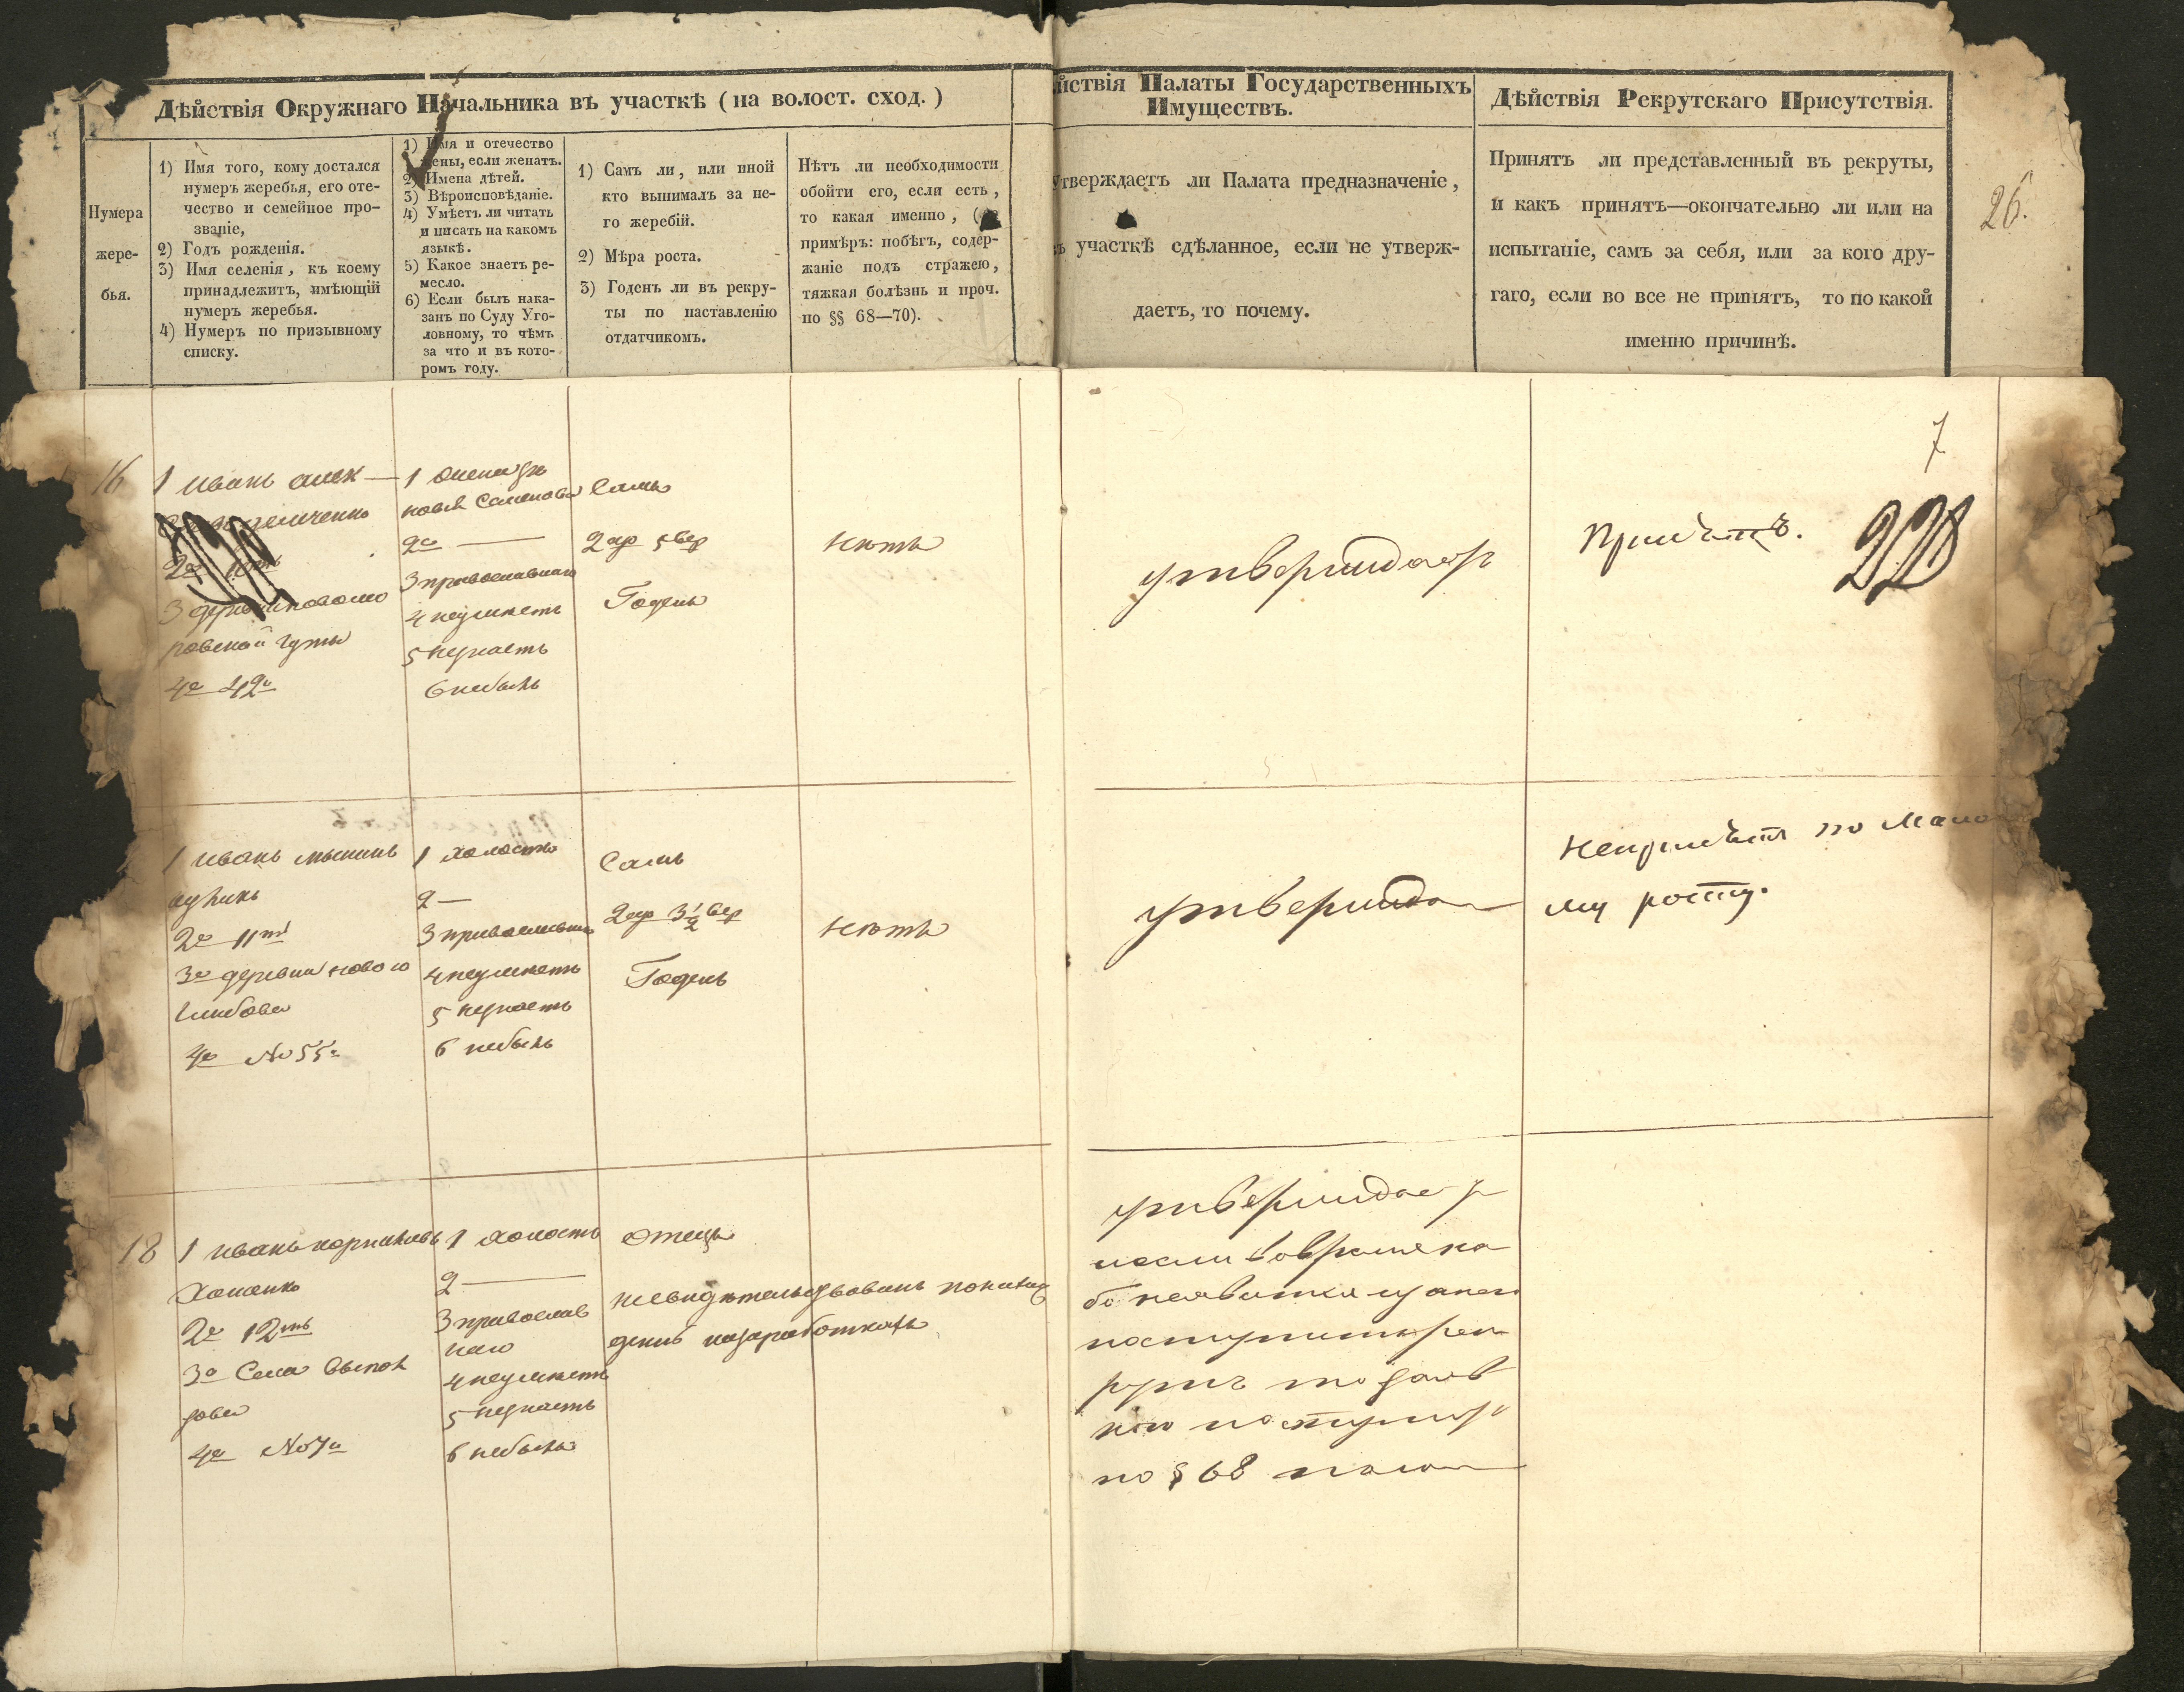 Дѣйствія Окружнаго Начальника въ участкѣ ( на волост. сход. )
Нумера
жере-
бья.
1) Имя того, кому достался
нумеръ жеребья, его оте-
чество и семейное про-
званіе,
2) Годъ рожденія.
3) Имя селенія, къ коему
принадлежитъ, имѣющій
нумеръ жеребья.
4) Нумеръ по призывному
списку.
1) Имя и отечество
жены, если женатъ.
2) Имена дѣтей.
3) Вѣроисповѣданіе.
4) Умѣетъ ли читать
и писать на какомъ
языкѣ.
5) Какое знаетъ ре-
месло.
6) Если былъ нака-
занъ по Суду Уго-
ловному, то чѣмъ
за что и въ кото-
ромъ году.
1) Самъ ли, или иной
кто вынималъ за не-
го жеребій.
2) Мѣра роста.
3) Годенъ ли въ рекру-
ты по наставленію
отдатчикомъ.
Нѣтъ ли необходимости
обойти его, если есть,
то какая именно, (
примѣръ: побѣгъ, содер-
жаніе подъ стражею,
тяжкая болѣзнь и проч.
по §§ 68—70).
йствія Палаты Государственныхъ
Имуществъ.
утверждаетъ ли Палата предназначеніе,
участкѣ сдѣланное, если не утверж-
даетъ, то почему.
Дѣйствія Рекрутскаго Присутствія.
Принятъ ли представленный въ рекруты,
и какъ принятъ—окончательно ли или на
испытаніе, самъ за себя, или за кого дру-
гаго, если во все не принятъ, то по какой
именно причинѣ.
26.
7
16
1 иванъ алек—
3 деревни
ровской гуты
4е 42й
1 женатъ
Семенова
2е —
3 православнаго
4 неумѣетъ
5 незнаетъ
6 небылъ
Самъ
2 ар 5 вер
Годенъ
нѣтъ
утверждаетъ
Принятъ.
220
1 иванъ
2е 11ть
3е деревни нового
4е No 55й
1 холостъ
2 —
3 православнаго
4 неумѣетъ
5 незнаетъ
6 небылъ
Самъ
2 ар 3 1/2 вер
Годенъ
нѣтъ
утвержда
Непринятъ по мало
му росту.
18
1 иванъ
Хоменко
2е 12ть
3е Села
4е No 7й
1 холостъ
2 —
3 православ
наго
4 неумѣетъ
5 незнаетъ
6 небылъ
отецъ
несвидѣтельствованъ по
назаработкахъ
утверждаетъ
рутъ то
по § 68